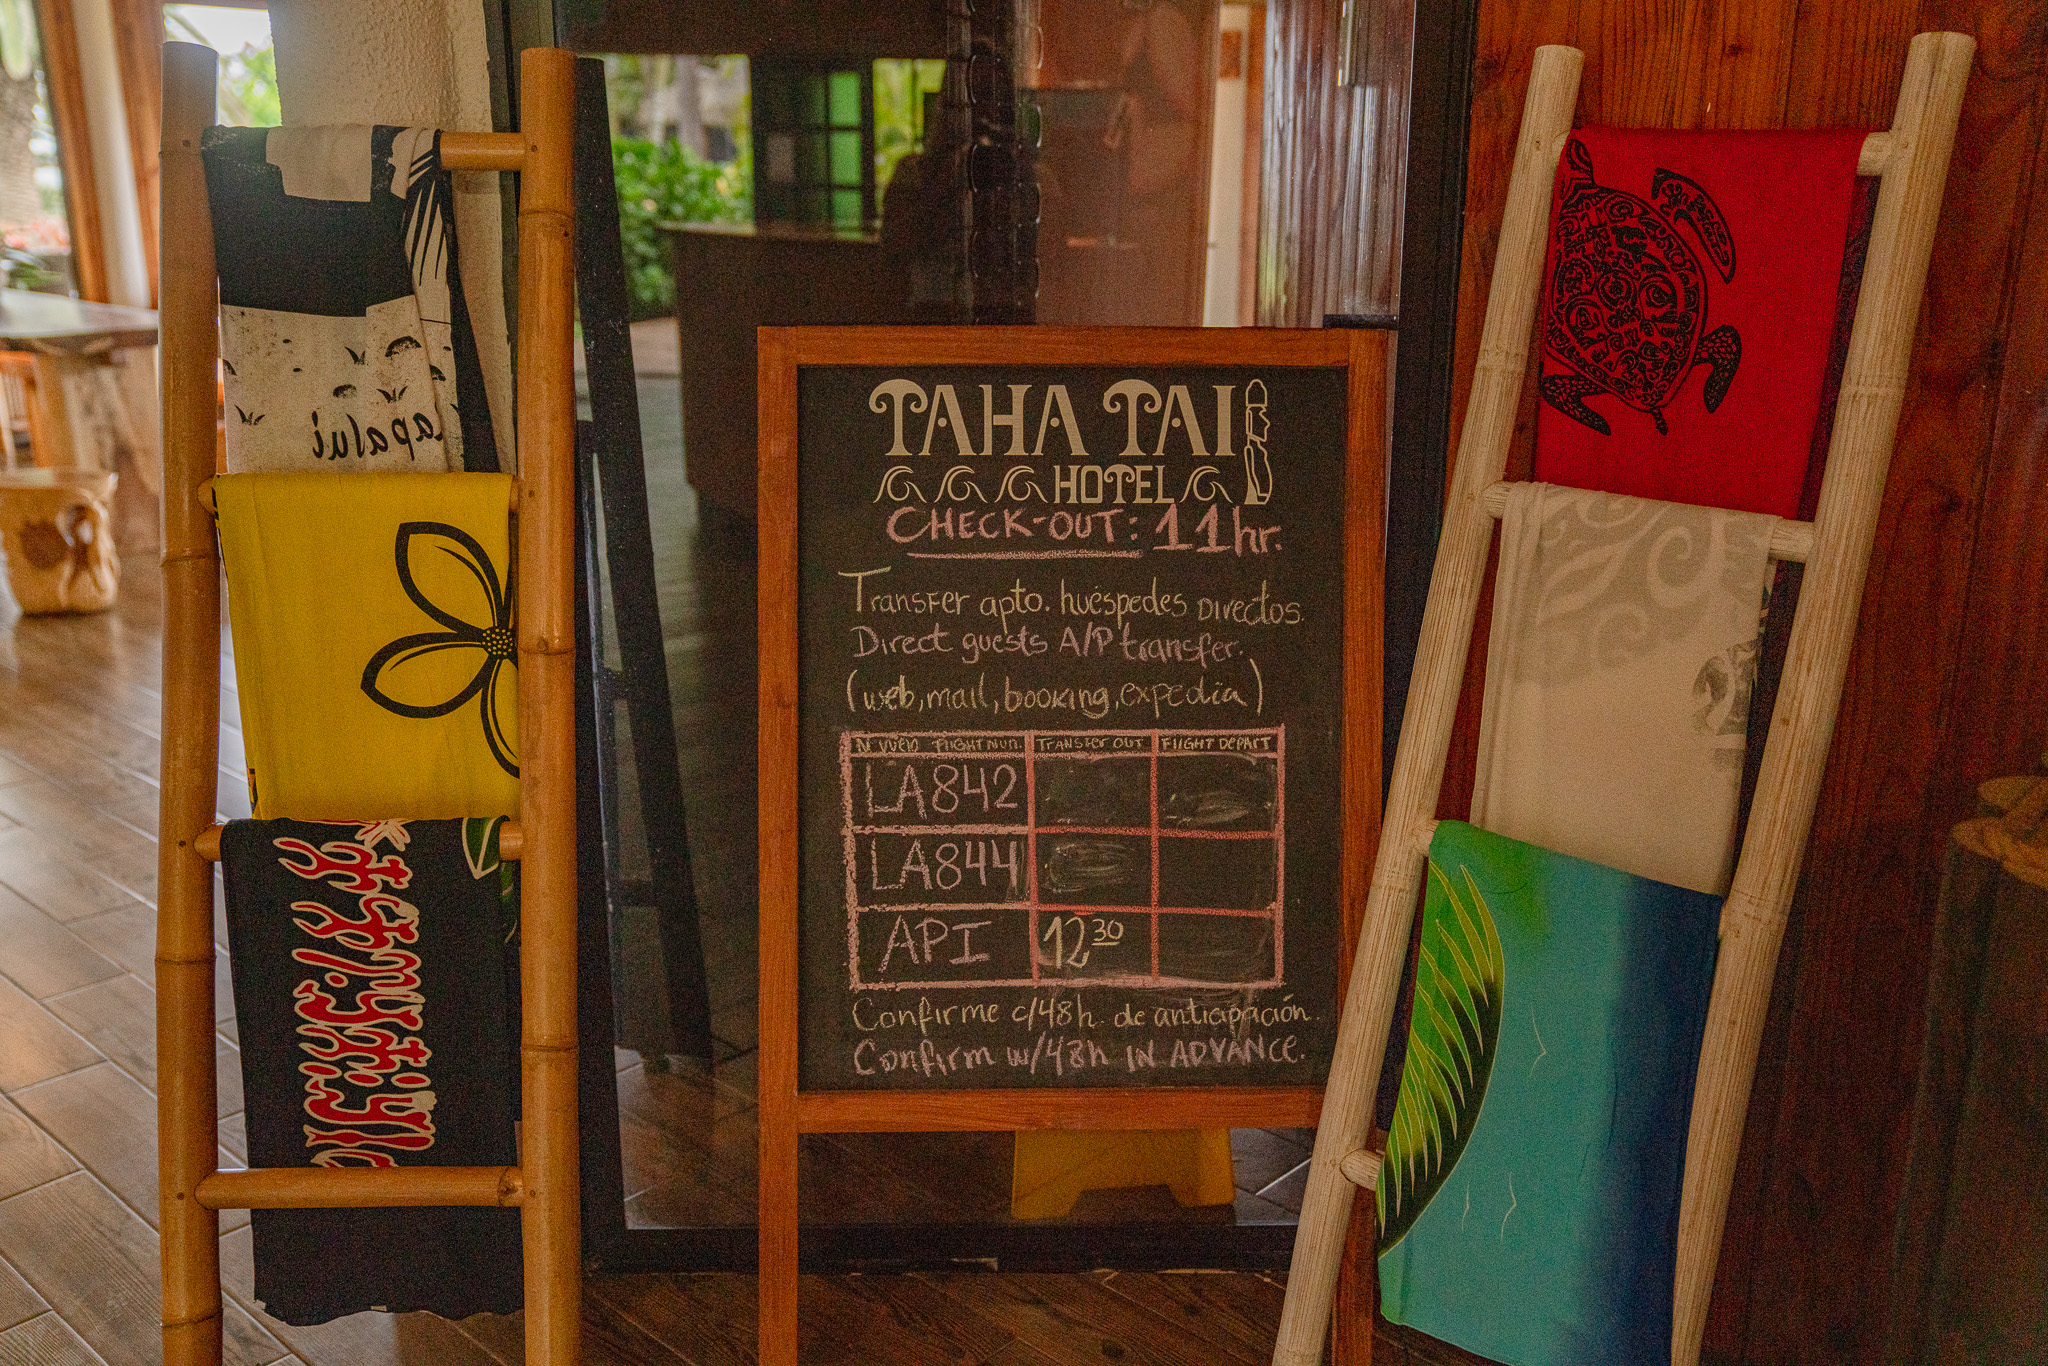 TAHA TAI
HOTEL
CHECK-OUT: 11hr.
Transfer apto. huéspedes Directos.
Direct guests A/P transfer.
(web, mail, booking, expedia)
N vuelo Flight num. Transfer out Flight Depart
LA842
LA844
API 12 30
Confirme c/48h. de anticipación.
Confirm w/48h IN ADVANCE.